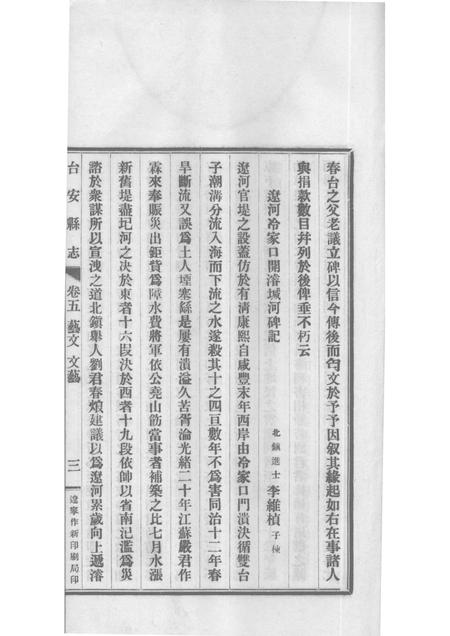 春台之父老議立碑以信今傳後而匄文於予予因叙其緣起如右在事諸人
與捐欵數目幷列於後俾垂不朽云
遼河冷家口開濬堿河碑記
北鎭進士李維楨子棟
遼河官堤之設蓋仿於有淸康熙自咸豐末年西岸由冷家口門潰決循雙台
子潮溝分流入海而下流之水遂殺其十之四亘數年不爲害同治十二年春
旱斷流又誤爲土人堙塞緜是屢有潰溢久苦胥淪光緒二十年江蘇嚴君作
霖來奉賑災出鉅貲爲障水費將軍依公堯山飭當事者補築之比七月水漲
新舊堤盡圮河之決於東者十六叚決於西者十九段依帥以省南汜濫爲災
諮於衆謀所以宣洩之道北鎭舉人劉君春烺建議以爲遼河累歲向上遞濬
台安縣志
卷五藝文 文藝
三
遼寧作新印刷局印